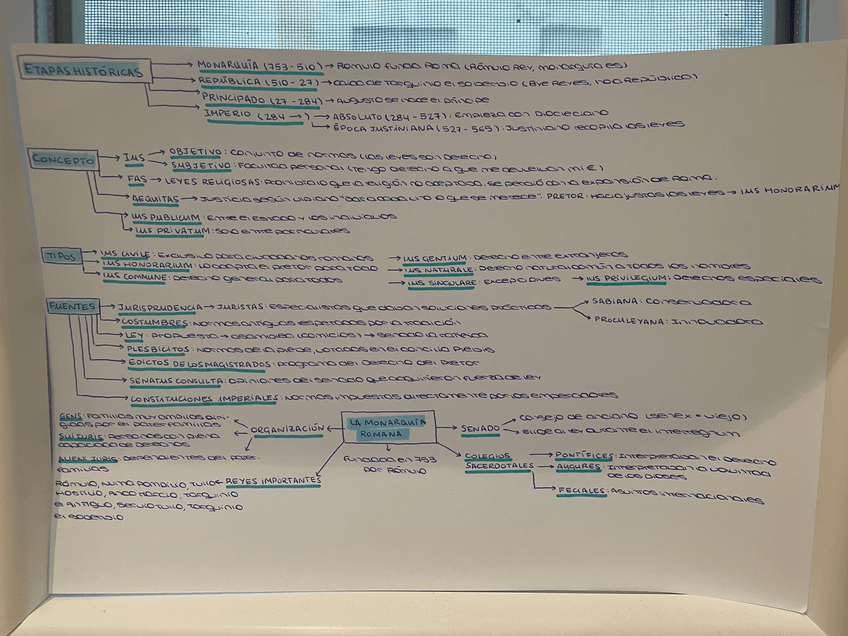 ETAPAS HISTÓRICAS
MONARQUÍA (753-510) → Rómulo funda Roma (Rómulo Rey, monarquía es)
REPÚBLICA (510-27) → caída de Tarquino el soberbio (Bye Reyes, hola República)
PRINCIPADO (27-284) → Augusto se hace el príncipe
IMPERIO (284 → ) → ABSOLUTO (284-527): Empieza con Diocleciano
ÉPOCA JUSTINIANA (527-565): Justiniano recopila las leyes
CONCEPTO
IUS
OBJETIVO: conjunto de normas (las leyes son derecho)
SUBJETIVO: Facultad personal (tengo derecho a que me devuelvan mi €)
FAS → LEYES RELIGIOSAS: prohibía lo que la religión no aceptaba, se perdió con la expansión de Roma.
AEQUITAS → Justicia según Ulpiano "dar a cada uno lo que se merece". PRETOR: Hacía justas las leyes → IUS HONORARIUM
IUS PUBLICUM: Entre el estado y los individuos
IUS PRIVATUM: solo entre particulares
TIPOS
IUS CIVILE: Exclusivo para ciudadanos romanos → IUS GENTIUM: Derecho entre extranjeros
IUS HONORARIUM: Lo adapta el pretor para todo → IUS NATURALE: Derecho natural común a todos los hombres
IUS COMMUNE: Derecho general para todos → IUS SINGULARE: EXCEPCIONES → IUS PRIVILEGIUM: Derechos especiales
FUENTES
JURISPRUDENCIA → JURISTAS: Especialistas que daban soluciones prácticas
SABIANA: Conservadora
PROCULEYANA: Innovadora
COSTUMBRES: Normas antiguas esperadas por la tradición
LEY: Propuesta → asamblea (comicios) → senado la ratifica
PLESBICITOS: Normas de la plebe, votadas en el concilia plebis
EDICTOS DE LOS MAGISTRADOS: programa del derecho del pretor
SENATUS CONSULTA: Opiniones del senado que adquirieron fuerza de ley
CONSTITUCIONES IMPERIALES: Normas impuestas directamente por los emperadores
LA MONARQUÍA
ROMANA
fundada en 753
por Rómulo
ORGANIZACIÓN
GENS: Familias muy amplias diri-
gidas por el pater familias
SUI IURIS: personas con plena
capacidad de derechos
ALIENI IURIS: dependientes del pater-
familias
REYES IMPORTANTES
Rómulo, Numa Pompilio, Tulio
Hostilio, Anco Marcio, Tarquinio
el Antiguo, Servio Tulio, Tarquinio
el soberbio
SENADO
consejo de anciano (senex = viejo)
elige al rey durante el interregnum
COLEGIOS
SACERDOTALES
PONTÍFICES: Interpretaban el derecho
AUGURES: Interpretaban la voluntad
de los dioses
FECIALES: Asuntos internacionales